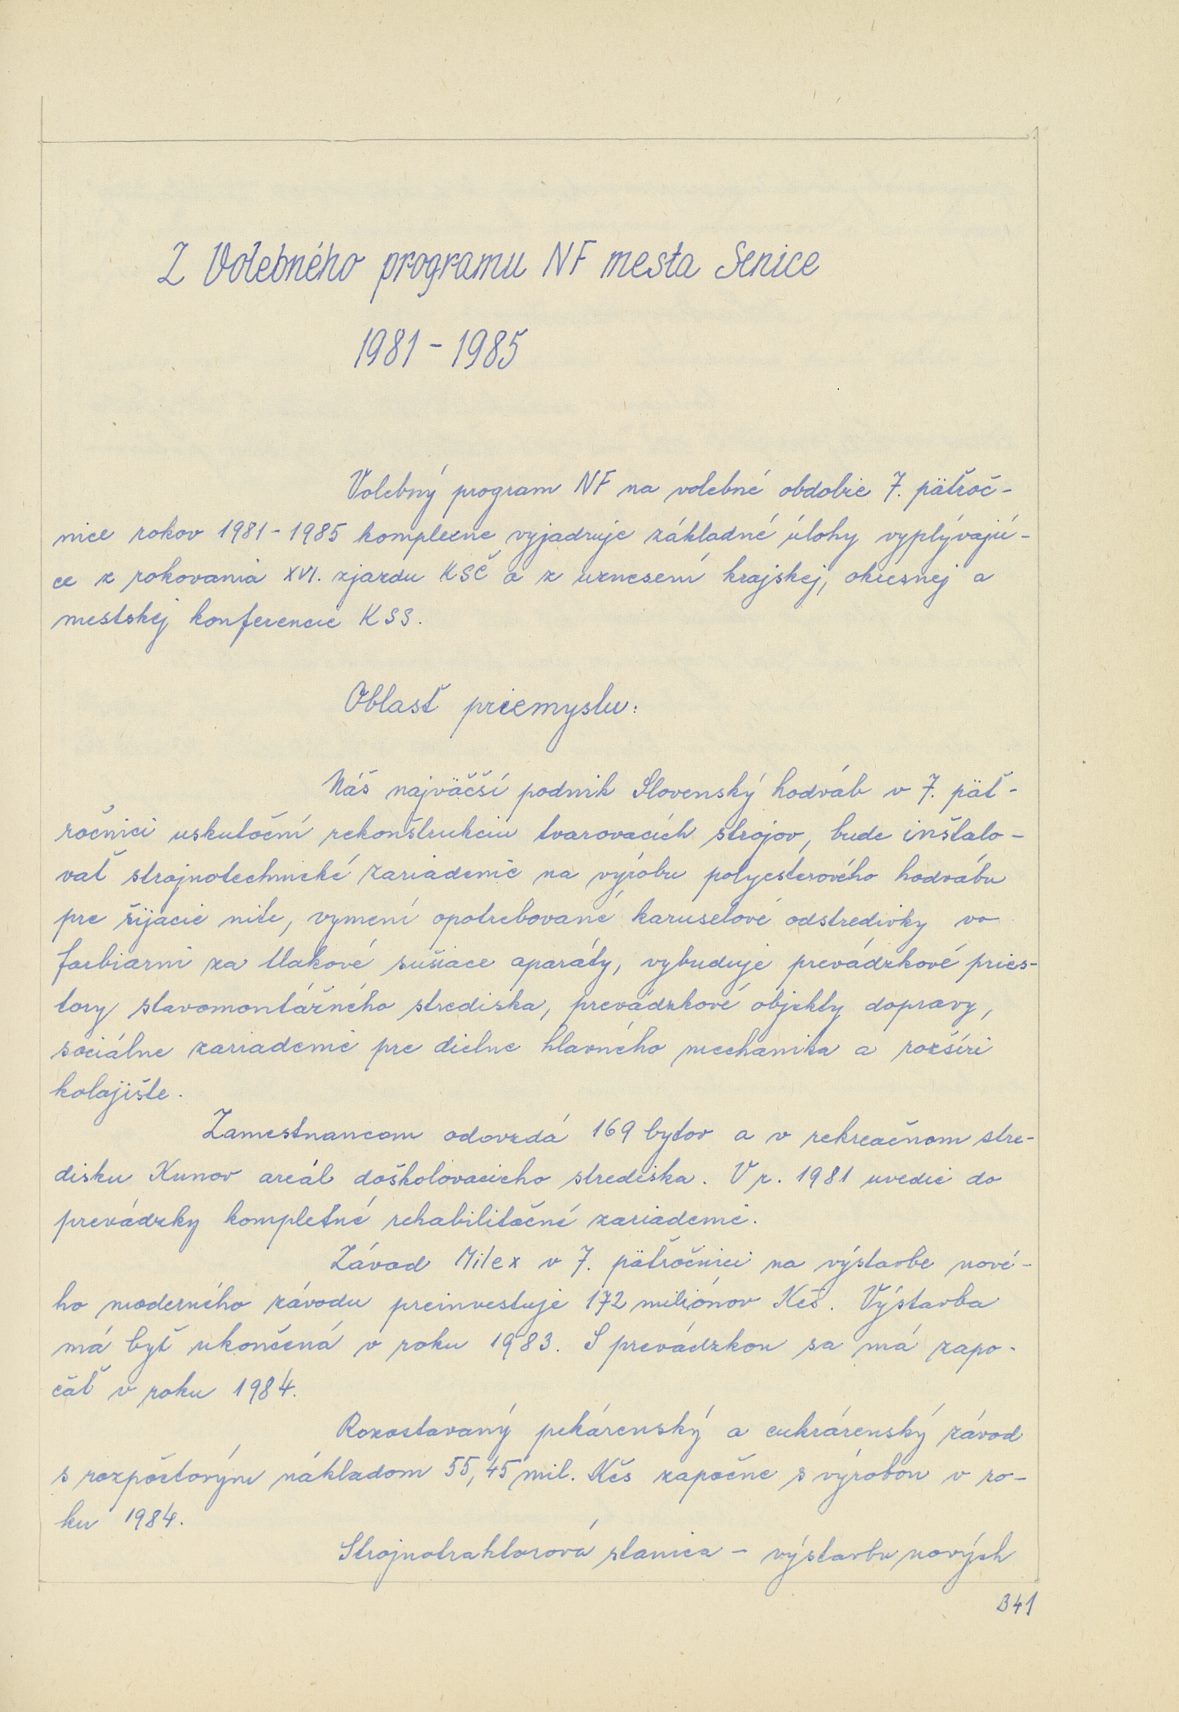 Z Volebného programu NF mesta Senice
1981 - 1985
Volebný program NF na volebné obdobie 7. päťroč-
nice rokov 1981 - 1985 komplexne vyjadruje základné úlohy vyplývajú-
ce z rokovania XVI. zjazdu KSČ a z uznesení krajskej, okresnej a
mestskej konferencie KSS.
Oblasť priemyslu:
Náš najväčší podnik Slovenský hodváb v 7. päť-
ročnici uskutoční rekonštrukciu tvarovacích strojov, bude inštalo-
vať strojnotechnické zariadenie na výrobu polyesterového hodvábu
pre šijacie nite, vymení opotrebované karuselové odstredivky vo
farbiarni za tlakové sušiace aparáty, vybuduje prevádzkové pries-
tory stavomontážneho strediska, prevádzkové objekty dopravy,
sociálne zariadenie pre dielne hlavného mechanika a rozšíri
kolajište.
Zamestnancom odovzdá 169 bytov a v rekreačnom stre-
disku Kunov areál doškolovacieho strediska. V r. 1981 uvedie do
prevádzky kompletné rehabilitačné zariadenie.
Závod Milex v 7. päťročnici na výstavbe nové-
ho moderného závodu preinvestuje 172 miliónov Kčs. Výstavba
má byť ukončená v roku 1983. S prevádzkou sa má zapo-
čať v roku 1984.
Rozostavaný pekárenský a cukrárenský závod
s rozpočtovým nákladom 55,45 mil. Kčs započne s výrobou v ro-
ku 1984.
Strojnotraktorová stanica - výstavbu nových
341